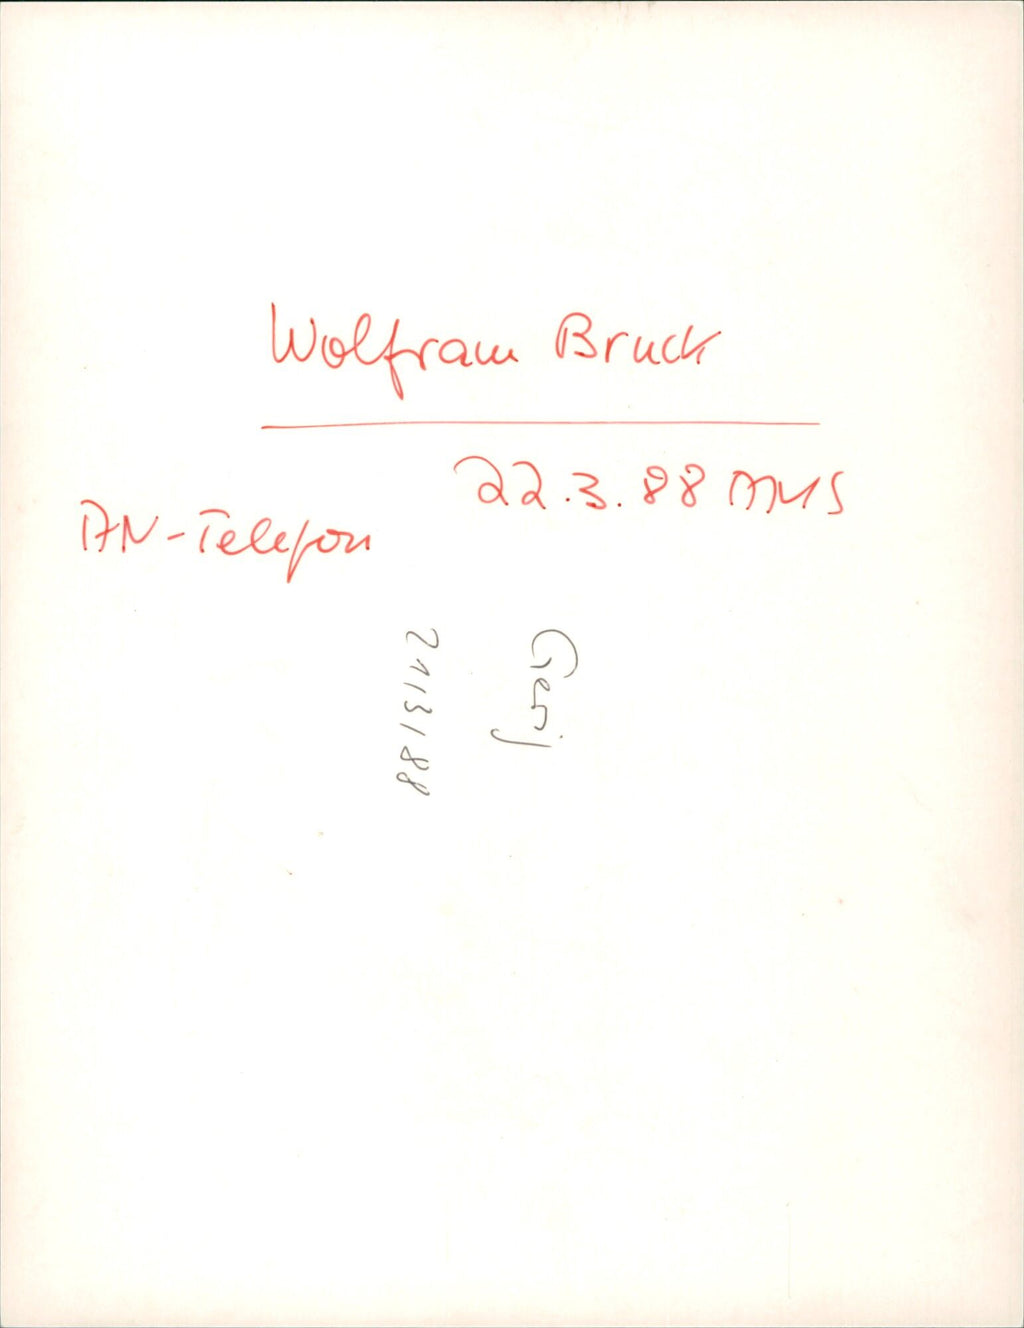 Wolfram Bruck
22.3.88
AN-Telefon
21/3/88